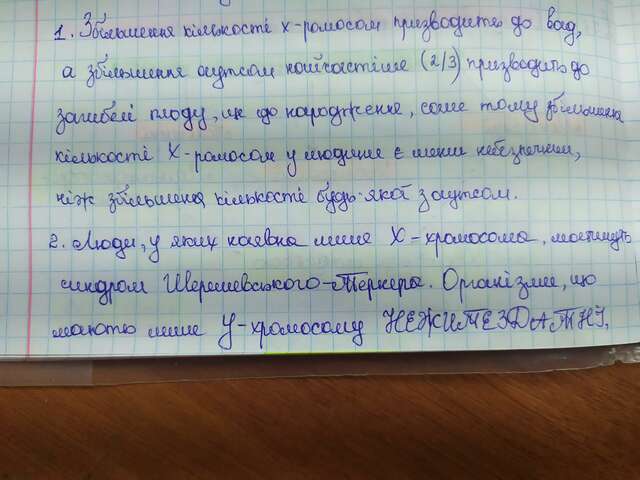 1. Збільшення кількості х-ромосом призводить до вад,
а збільшення аутсом найчастіше (2/3) призводить до
загибелі плоду, ще до народження, саме тому збільшення
кількості Х-ромосом у людини є менш небезпечним,
ніж збільшення кількості будь-якої з аутсом.
2. Люди, у яких наявна лише Х-хромосома, матимуть
синдром Шерешевського-Тернера. Організми, що
мають лише У-хромосому НЕЖИТЕЗДАТНІ.